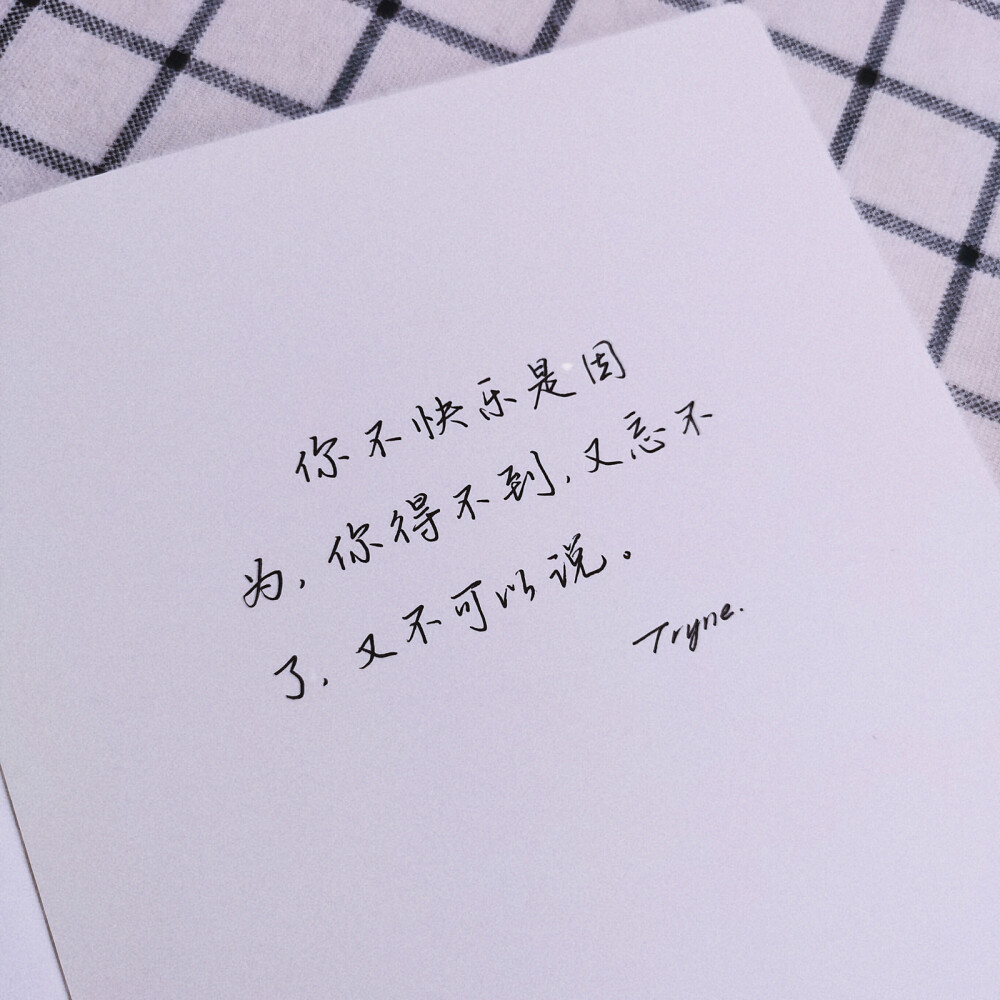 你不快乐是因
为，你得不到，又忘不
了，又不可以说。
Tryne.